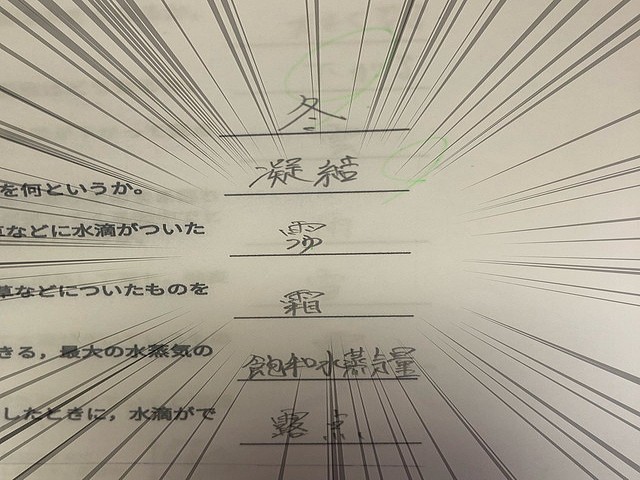 冬
を何というか。 凝結
草などに水滴がついた
草などについたものを 霜
きる，最大の水蒸気の 飽和水蒸気量
したときに，水滴がで 露点